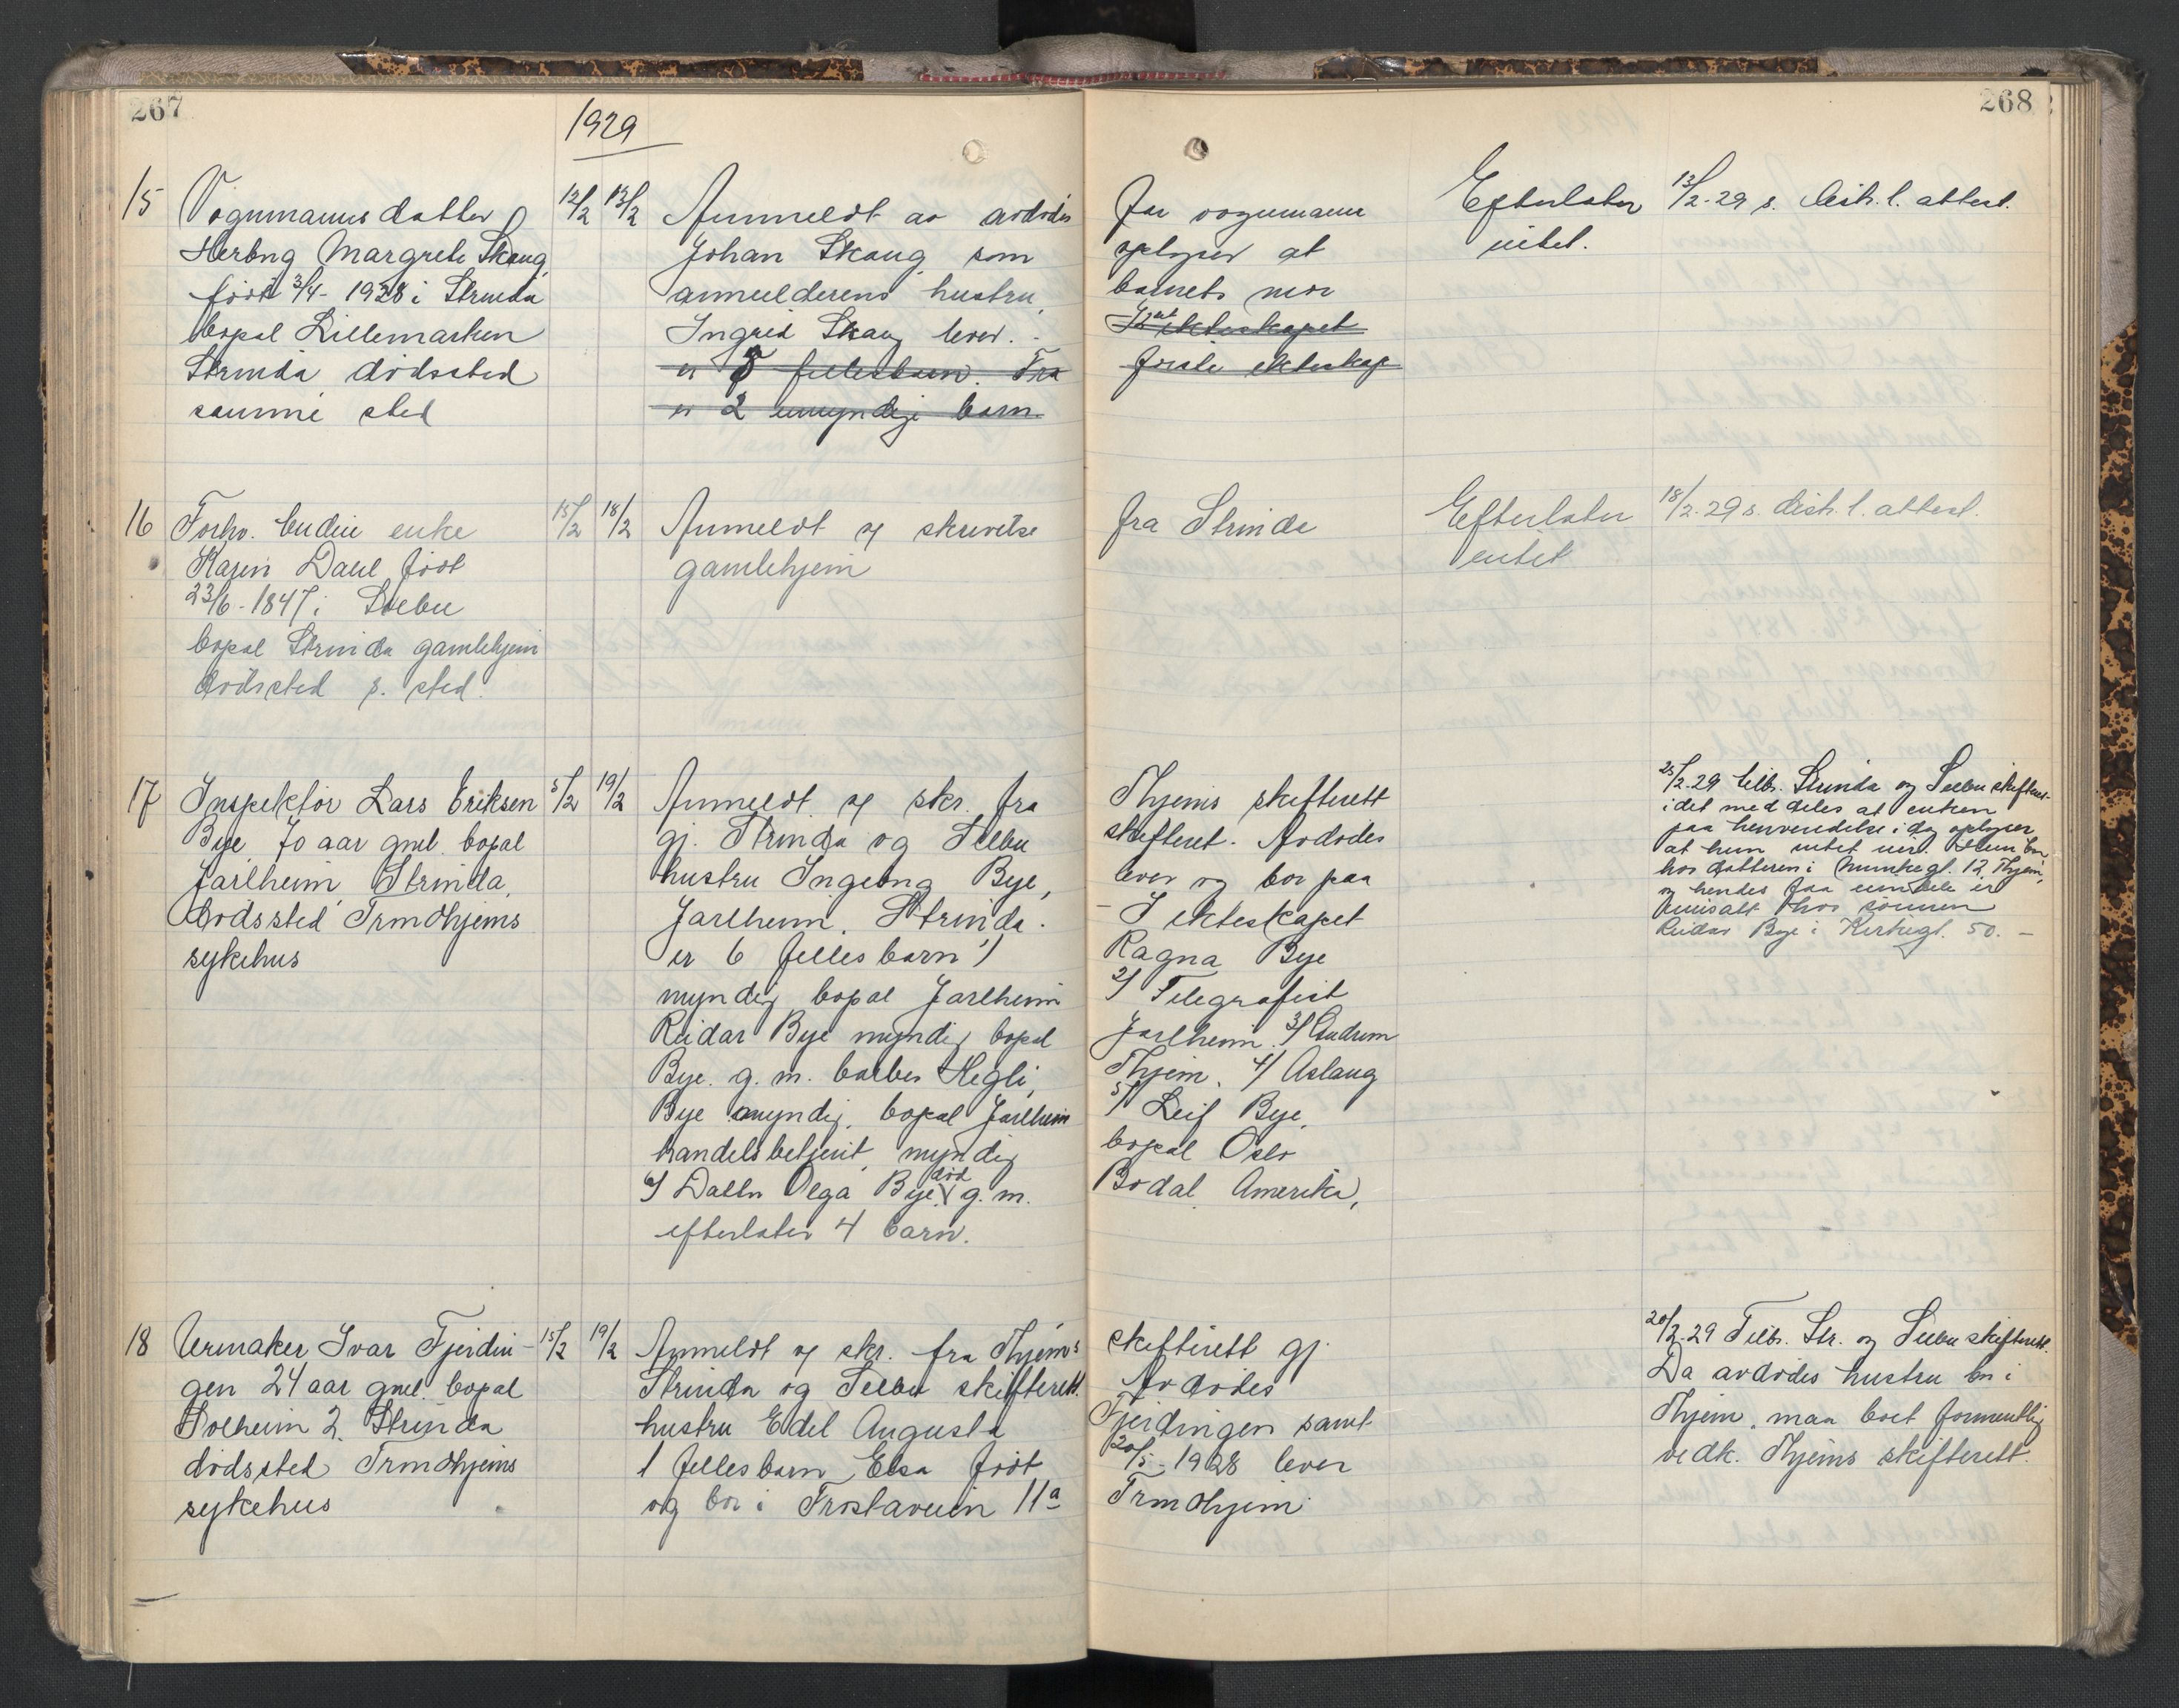 267
268
1929
15
Vognmanns datter
Herbrg Margrete Skaug,
født 3/4 - 1928 i Strinda
bopal Lillemarken
Strinda dødssted
samme sted
12/2
13/2
Anmeldt av avdødes far vognmann
Johan Skaug som oplyser at
anmelderens hustru, barnets mor
Ingrid Skaug lever. I 2net ekteskapet
er 5 fellesbarn. Fra første ekteskap
er 2 umyndige barn.
Efterlater
intet.
13/2-29 s. distr. l. attest.
16
Forhv. budeie enke
Karen Dahl født
23/6 - 1847 i Selbu
bopal Strinda gamlehjem
dødssted s. sted.
15/2
18/2
Anmeldt ved skrivelse fra Strinda
gamlehjem
Efterlater
intet
18/2-29 s. distr. l. attest.
17
Inspektør Lars Eriksen
Bye 70 aar gml. bopal
Jarlheim, Strinda,
Dødssted Trondhjems
sykehus
5/2
19/2
Anmeldt ved skr. fra Thjems skifterett
gj. Strinda og Selbu skifteret. Avdødes
hustru Ingeborg Bye, lever og bor paa
Jarlheim, Strinda. - I ekteskapet
er 6 fellesbarn 1/ Ragna Bye
myndig bopal Jarlheim 2/ Telegrafist
Reidar Bye myndig bopal Jarlheim. 3/ Gudrun
Bye. g. m. barber Hegli, Thjem. 4/ Aslaug
Bye myndig, bopal Jarlheim 5/ Leif Bye,
handelsbetjent myndig bopal Oslo
6/ Datter Olga Bye død g. m. Bodal Amerika,
efterlater 4 barn.
25/2-29 tilb. Strinda og Selbu skifteret-
idet meddeles at enken
paa henvendelse i dag oplyser
at hun intet eier. Hun bor
hos datteren i Munkegt. 12, Thjem,
og hendes faa eiendele er
hos sønnen
Reidar Bye i Kirkegt. 50. -
18
Urmaker Ivar Fjerdin-
gen 24 aar gml. bopal
Solheim 2, Strinda
dødssted Trondhjems
sykehus
15/2
19/2
Anmeldt ved skr. fra Thjems skifterett gj.
Strinda og Selbu skifterett. Avdødes
hustru Edel Augusta Fjerdingen samt
1 fellesbarn Elsa født 20/5 - 1928 lever
og bor i Frostaveien 11a Trondhjem.
20/2-29 Tilb. Str. og Selbu skifterett.
Da avdødes hustru bor i
Thjem, maa boet formentlig
vedk. Thjems skifterett.